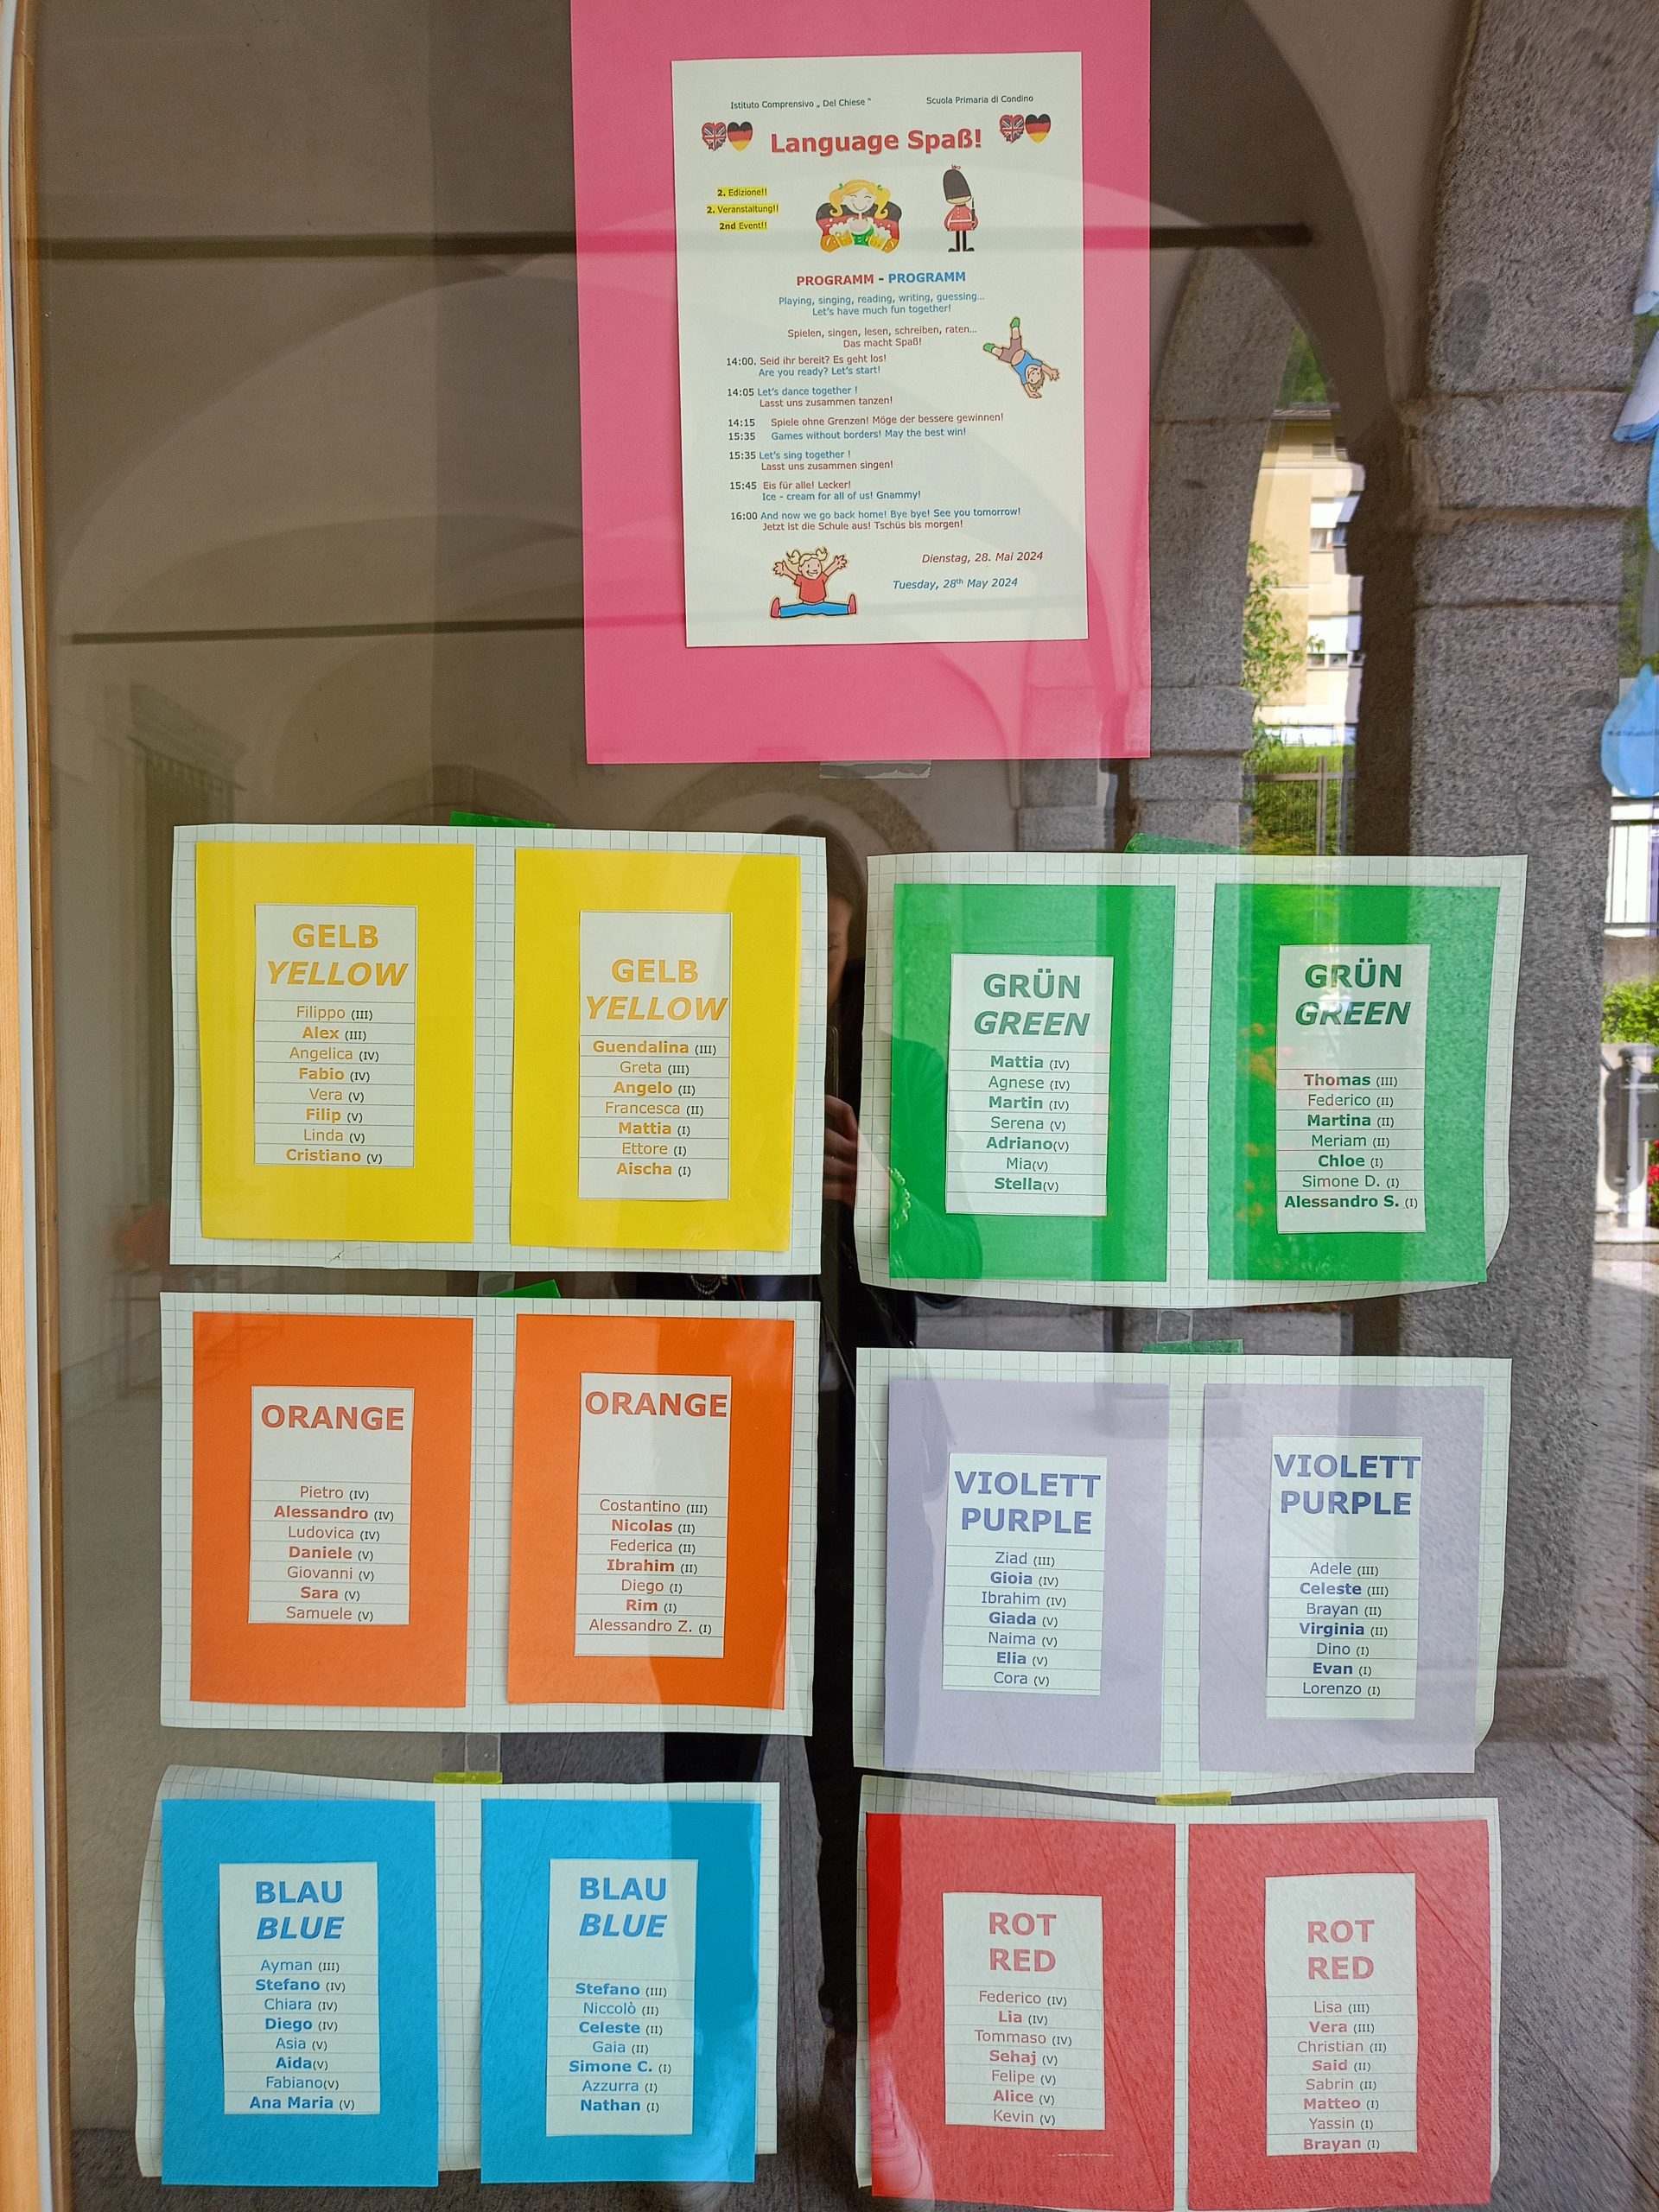 Istituto Comprensivo „ Del Chiese “ Scuola Primaria di Condino
Language Spaß!
2. Edizione!!
2. Veranstaltung!!
2nd Event!!
PROGRAMM - PROGRAMM
Playing, singing, reading, writing, guessing…
Let's have much fun together!
Spielen, singen, lesen, schreiben, raten…
Das macht Spaß!
14:00. Seid ihr bereit? Es geht los!
Are you ready? Let's start!
14:05 Let's dance together !
Lasst uns zusammen tanzen!
14:15 Spiele ohne Grenzen! Möge der bessere gewinnen!
15:35 Games without borders! May the best win!
15:35 Let's sing together !
Lasst uns zusammen singen!
15:45 Eis für alle! Lecker!
Ice - cream for all of us! Gnammy!
16:00 And now we go back home! Bye bye! See you tomorrow!
Jetzt ist die Schule aus! Tschüs bis morgen!
Dienstag, 28. Mai 2024
Tuesday, 28th May 2024
GELB
YELLOW
Filippo (III)
Alex (III)
Angelica (IV)
Fabio (IV)
Vera (V)
Filip (V)
Linda (V)
Cristiano (V)
GELB
YELLOW
Guendalina (III)
Greta (III)
Angelo (II)
Francesca (II)
Mattia (I)
Ettore (I)
Aischa (I)
GRÜN
GREEN
Mattia (IV)
Agnese (IV)
Martin (IV)
Serena (V)
Adriano(V)
Mia(V)
Stella(V)
GRÜN
GREEN
Thomas (III)
Federico (II)
Martina (II)
Meriam (II)
Chloe (I)
Simone D. (I)
Alessandro S. (I)
ORANGE
Pietro (IV)
Alessandro (IV)
Ludovica (IV)
Daniele (V)
Giovanni (V)
Sara (V)
Samuele (V)
ORANGE
Costantino (III)
Nicolas (II)
Federica (II)
Ibrahim (II)
Diego (I)
Rim (I)
Alessandro Z. (I)
VIOLETT
PURPLE
Ziad (III)
Gioia (IV)
Ibrahim (IV)
Giada (V)
Naima (V)
Elia (V)
Cora (V)
VIOLETT
PURPLE
Adele (III)
Celeste (III)
Brayan (II)
Virginia (II)
Dino (I)
Evan (I)
Lorenzo (I)
BLAU
BLUE
Ayman (III)
Stefano (IV)
Chiara (IV)
Diego (IV)
Asia (V)
Aida(V)
Fabiano(V)
Ana Maria (V)
BLAU
BLUE
Stefano (III)
Niccolò (II)
Celeste (II)
Gaia (II)
Simone C. (I)
Azzurra (I)
Nathan (I)
ROT
RED
Federico (IV)
Lia (IV)
Tommaso (IV)
Sehaj (V)
Felipe (V)
Alice (V)
Kevin (V)
ROT
RED
Lisa (III)
Vera (III)
Christian (II)
Said (II)
Sabrin (II)
Matteo (I)
Yassin (I)
Brayan (I)